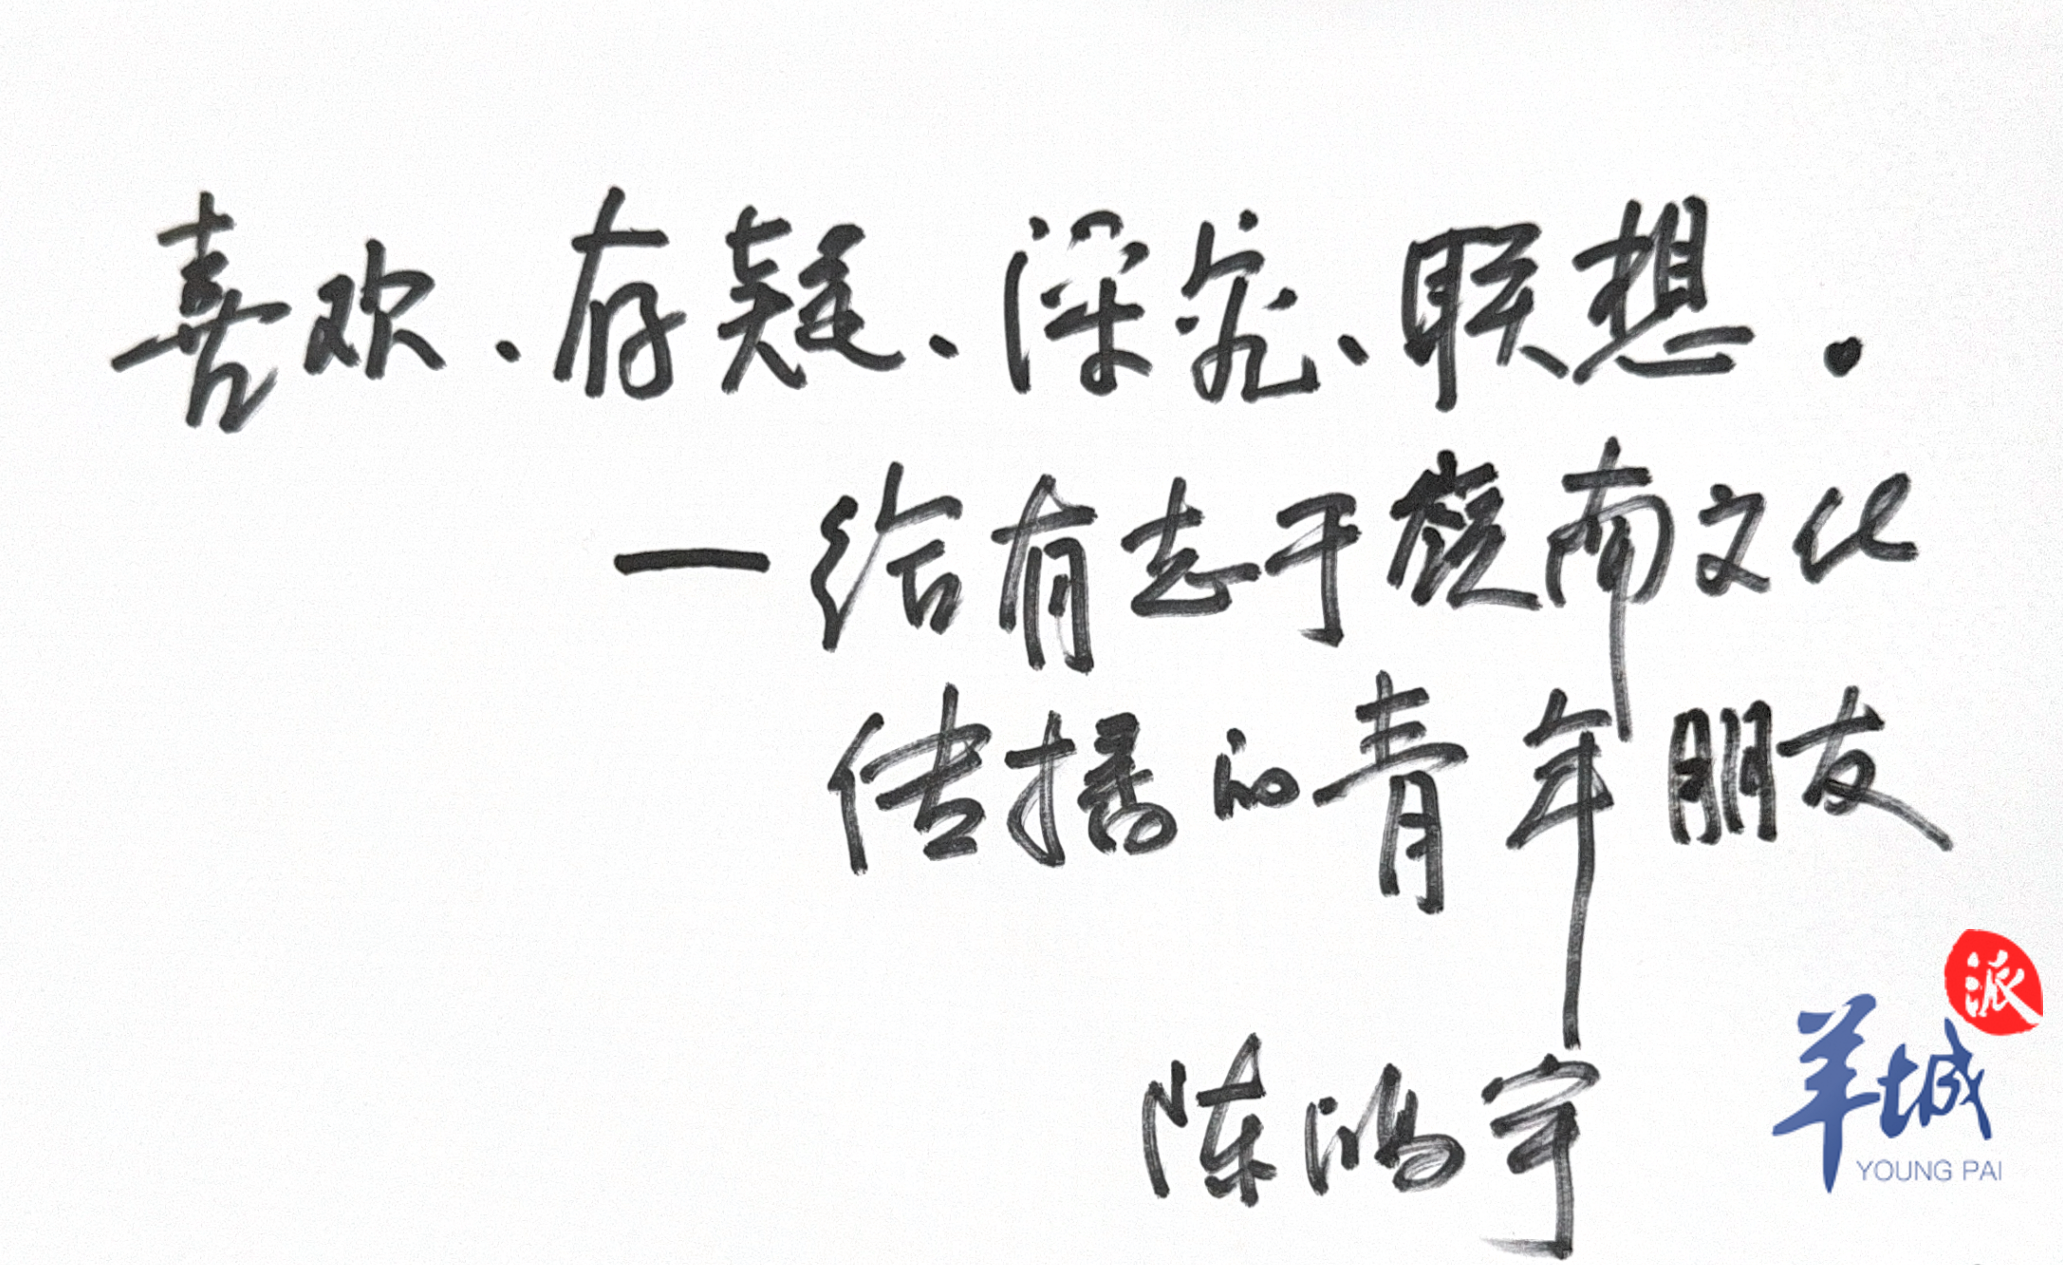 喜欢、存疑、深究、联想.
—给有志于岭南文化
传播的青年朋友
陈鸿宇
派
羊城
YOUNG PAI